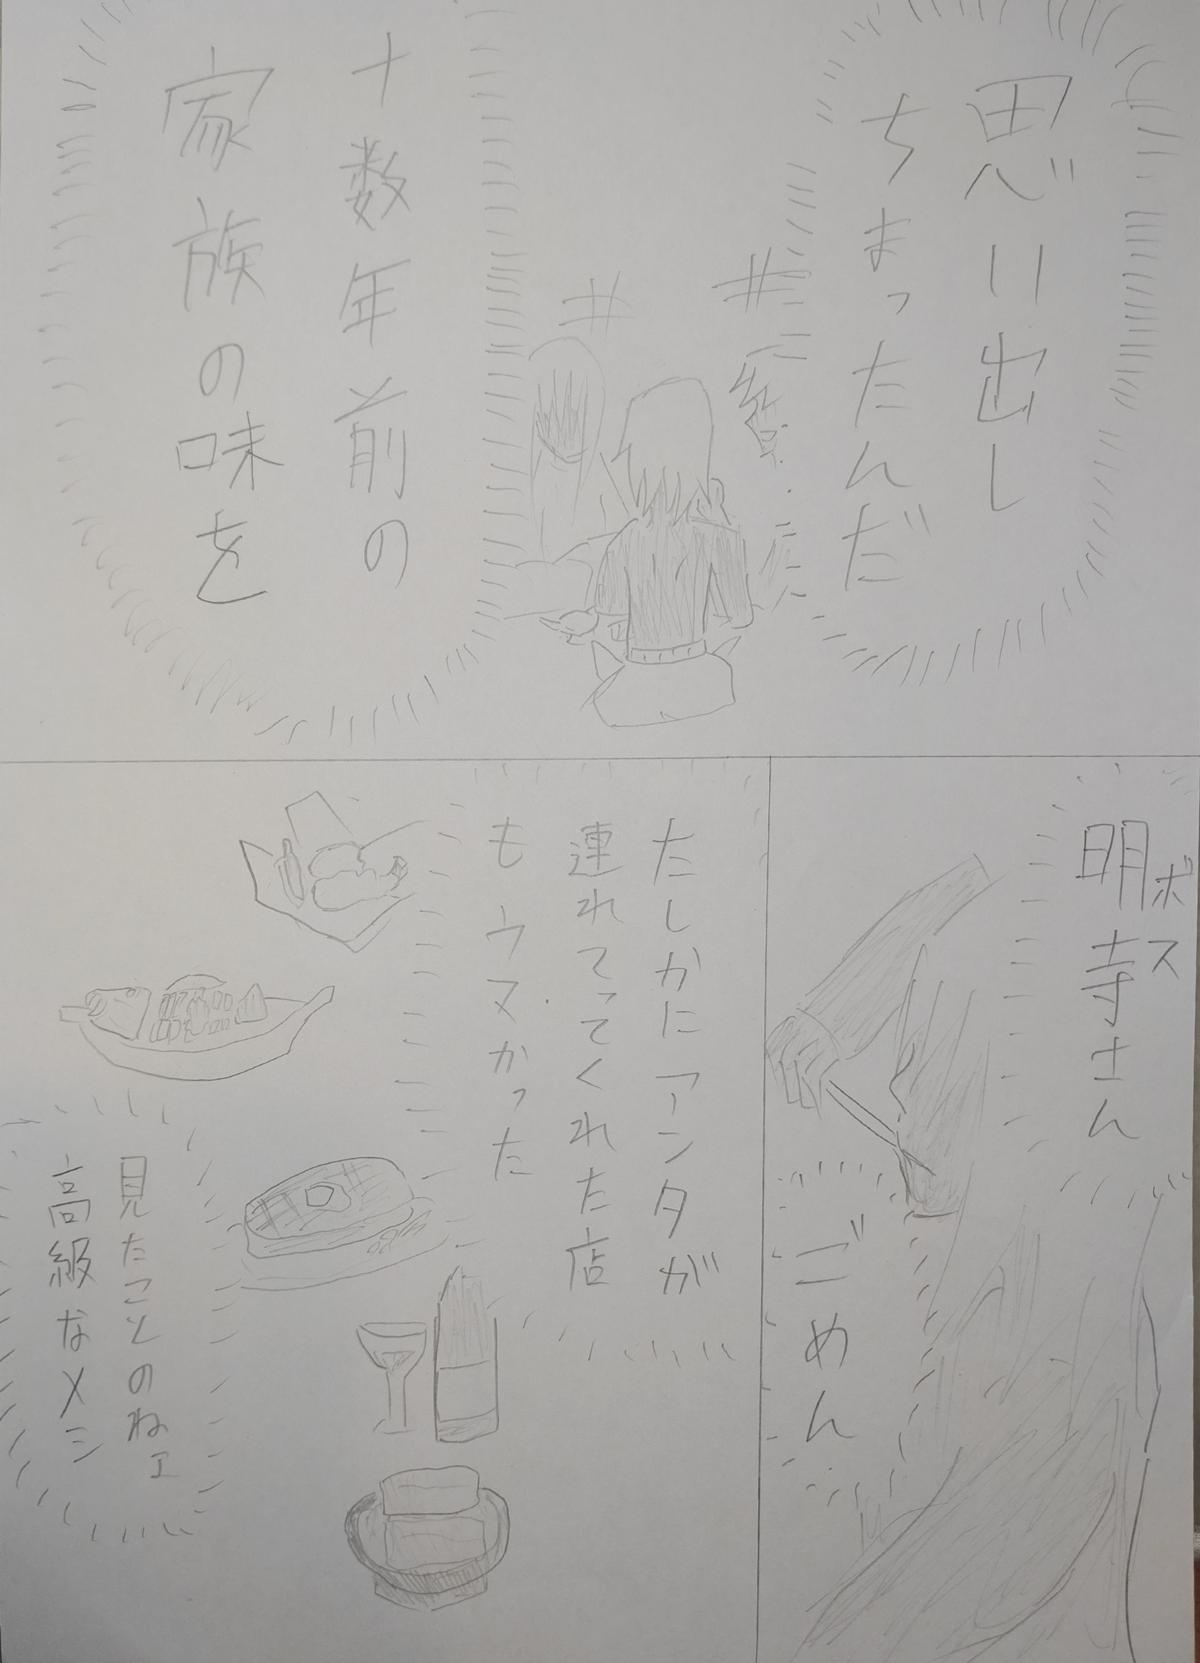 思い出し
ちまったんだ
十数年前の
家族の味を
ボス
明寺さん
ごめん
たしかにアンタが
連れてってくれた店
もウマかった
見たことのねェ
高級なメシ